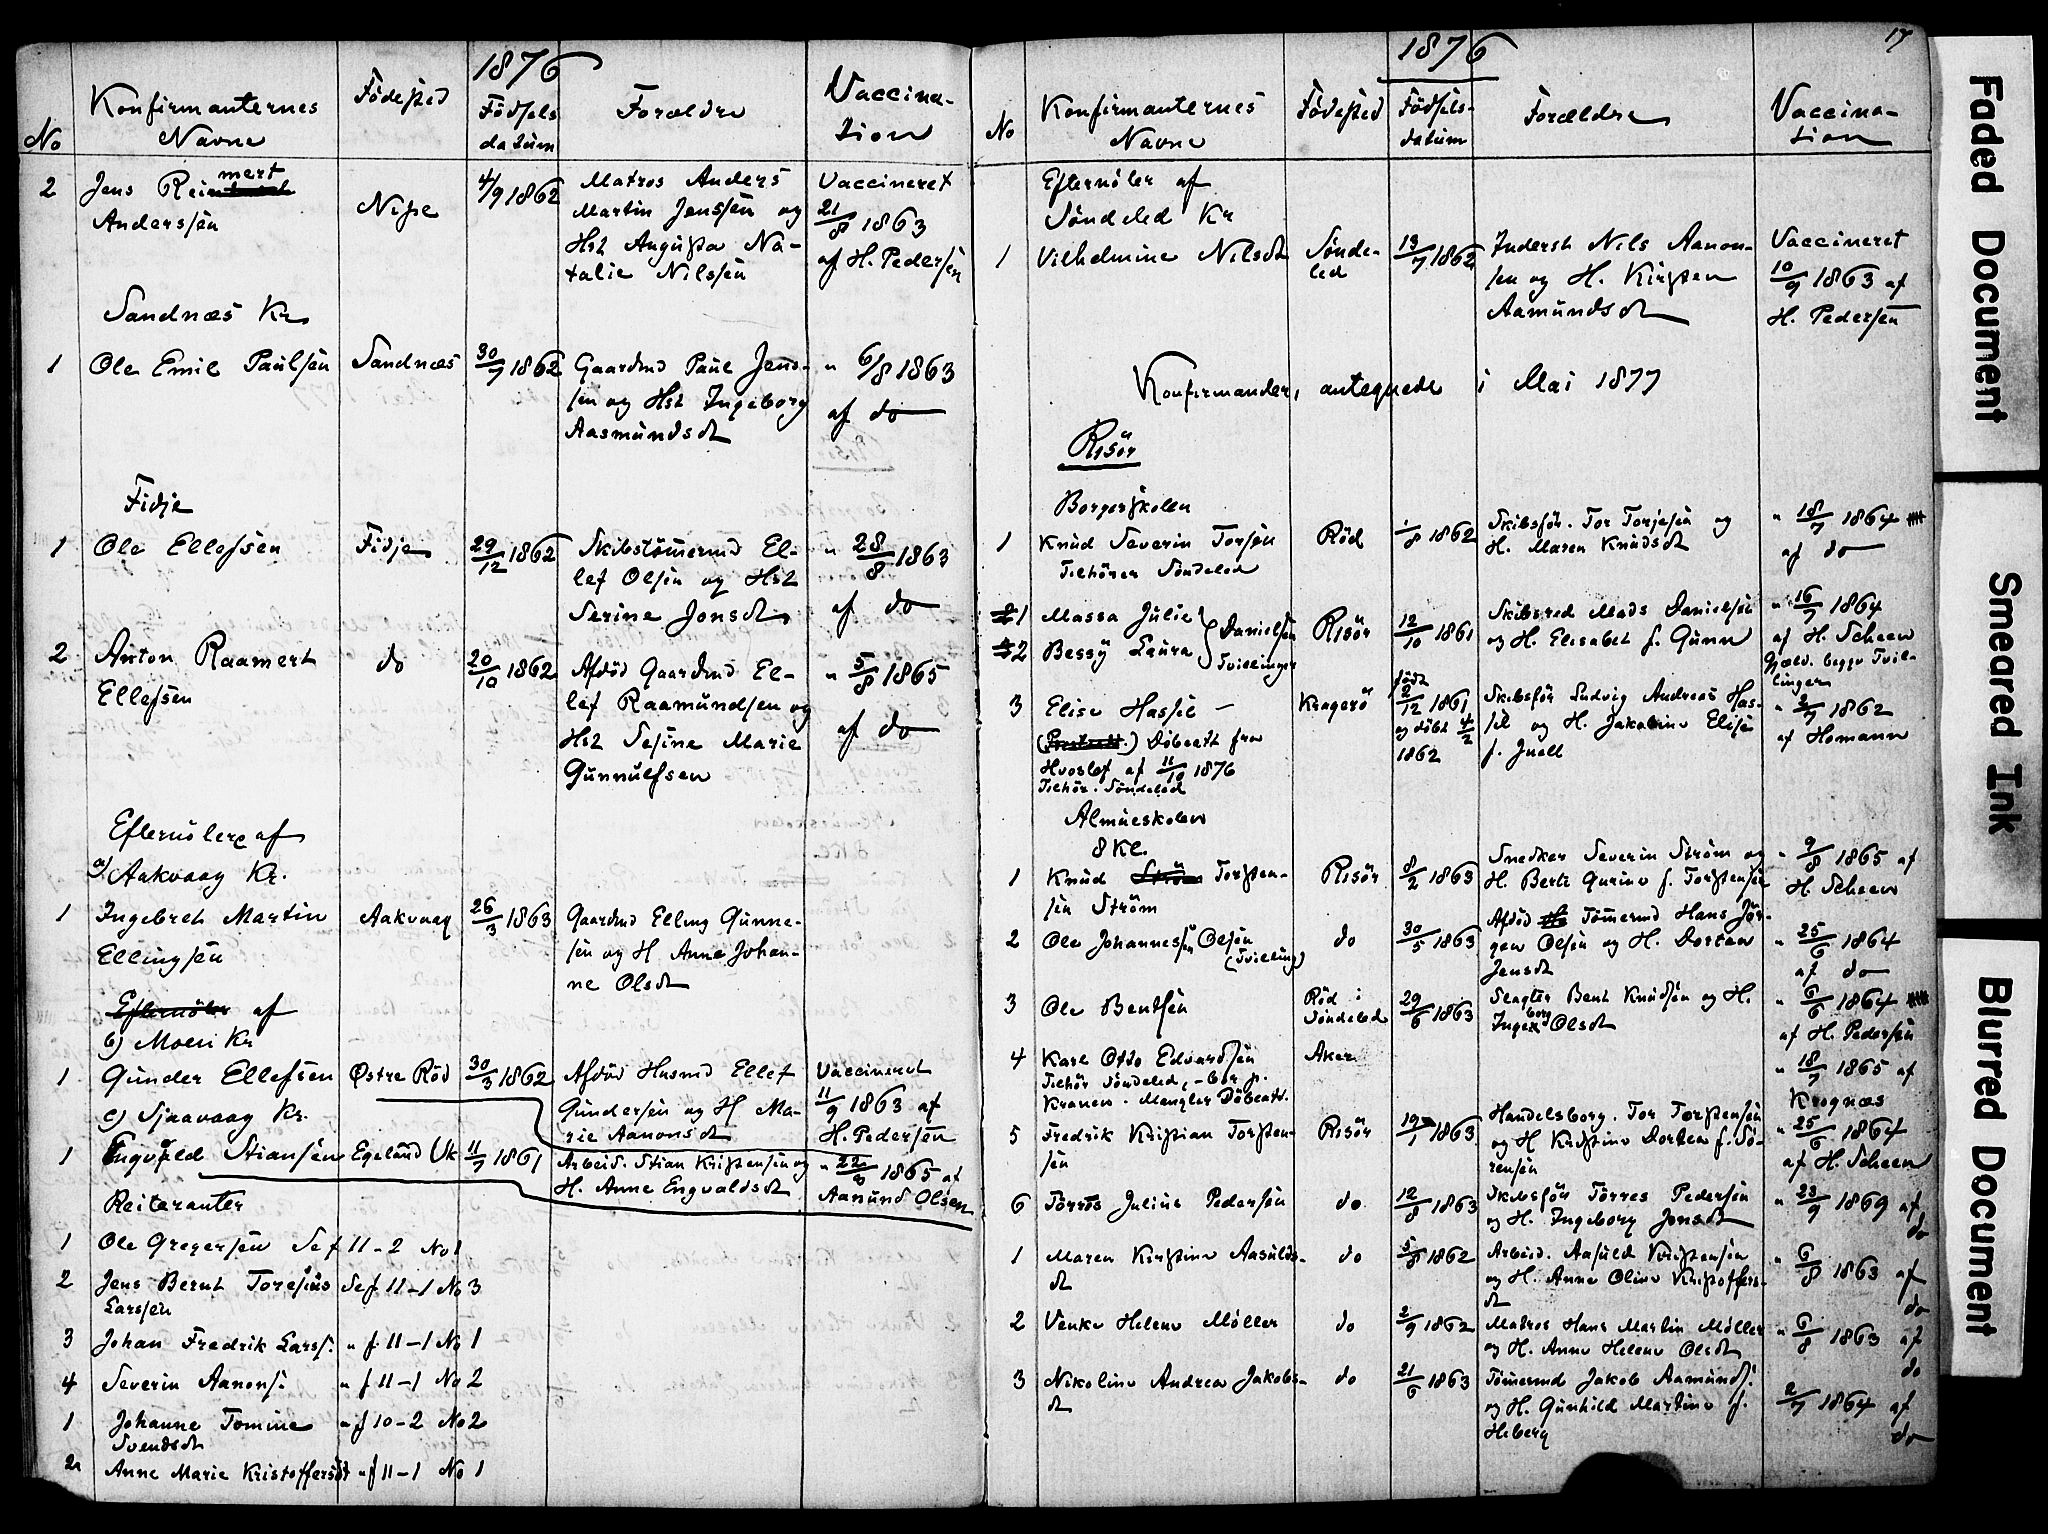 1876
No
Konfirmanternes
Navne
Födested
Födsels
datum
Forældre
Vaccina-
tion
2 Jens Reinmert
Anderssen
Nipe
4/9 1862
Matros Anders
Martin Jenssen og
Hst Augusta Na-
talie Nilssen
Vaccineret
21/8 1863
af H. Pedersen
Sandnæs Kr
1 Ole Emil Paulsen
Sandnæs
30/7 1862
Gaardmd Paul Jens-
sen og Hst Ingeborg
Aasmundsdt
" 6/8 1863
af do
Fidje
1 Ole Ellefsen
Fidje
29/12 1862
Skibstömermd El-
lef Olsen og Hst
Serine Jonsdt
" 28/8 1863
af do
2 Anton Raamert
Ellefsen
do
20/10 1862
Afdöd Gaardmd El-
lef Raamundsen og
Hst Sesine Marie
Gunnulfsen
" 5/8 1865
af do
Efternölere af
a) Aakvaag Kr.
1 Ingebreth Martin
Ellingsen
Aakvaag
26/3 1863
Gaardmd Elling Gunne-
sen og H Anne Johan-
ne Olsdt
Efternöler af
b) Moen Kr
1 Gunder Ellefsen
Østre Röd
30/3 1862
Afdöd Husmd Ellef
Gundersen og H Ma-
rie Aanonsdt
Vaccineret
11/9 1863 af
H. Pedersen
c) Sjaavaag Kr.
1 Engvald Stiansen
Egelund Vk
11/7 1861
Arbeid. Stian Kristensen og
H. Anne Engvaldsdt
" 22/8 1865 af
Aanund Olsen
Reiteranter
1 Ole Gregersen Se f 11-2 No 1
2 Jens Bernt Torejus
Larssen
Se f 11-1 No 3
3 Johan Fredrik Larss. " f. 11-1 No 1
4 Severin Aanons. " f 11-1 No 2
1 Johanne Tomine
Svendsdt
" f 10-2 No 2
2 Anne Marie Kristoffersdt " f 11-1 No 1
17
1876
No
Konfirmanternes
Navne
Födested
Födsels-
datum
Forældre
Vaccina-
tion
Efternöler af
Söndeled Kr
1 Vilhelmine Nilsdt
Sönde-
led
13/7 1862
Inderst Nils Aanon-
sen og H. Kirsten
Aamundsdt
Vaccineret
10/9 1863 af
H. Pedersen
Konfirmander, antegnede i Mai 1877
Risör
Borgerskolen
1 Knud Severin Torsen
Tilhörer Söndeled
Röd
1/8 1862
Skibsför. Tor Torjesen og
H. Maren Knudsdt
" 18/7 1864
af do
1 Massa Julie
2 Bessy Laura
Danielsen
Tvillinger
Risör
12/10 1861
Skibsred Mads Danielsen
og H. Elisabet f. Gunn
" 16/7 1864
af H. Scheen
Gjæld. begge Tvil-
linger
3 Elise Hassel -
Döbeatt fra
Hvoslef af 11/10 1876
Tilhör. Söndeled
Kragerö
födt
2/12 1861
og döbt 4/2
1862
Skibsför Ludvig Andreas Has-
sel og H. Jakobine Elise
f. Juell
" 2/7 1862
af Homann
Almueskolen
8 Kl.
1 Knud Ström Torsten-
sen Ström
Risör
8/2 1863
Snedker Severin Ström og
H. Berte Gurine f. Torstensen
" 9/8 1865 af
H. Scheen
2 Ole Johannessen Olsen
(Tvilling)
do
30/5 1863
Afdöd Tömermd Hans Jör-
gen Olsen og H. Dortea
Jensdt
" 25/6 1864
af do
3 Ole Bentsen
Röd i
Söndeled
29/6 1863
Slagter Bent Knudsen og H.
Ingeborg Olsdt
" 6/6 1864
af H. Pedersen
4 Karl Otto Edvardsen
Tilhör Söndeled, - bor p.
Kranen. Mangler Döbeatt.
Aker
" 18/7 1865 af
Krognæs
5 Fredrik Kristian Torsten-
sen
Risör
19/1 1863
Handelsborg. Tor Torstensen
og H Kristine Dortea f. Sö-
rensen
" 25/6 1864
af H. Scheen
6 Törres Julius Pedersen
do
12/8 1863
Skibsför Törres Pedersen
og H. Ingeborg Jonsdt
" 23/9 1869 af
do
1 Maren Kirstine Aasulds-
dt
do
5/8 1862
Arbeid. Aasuld Kristensen
og H. Anne Oline Kristoffers-
dt
" 6/8 1863 af
do
2 Venke Helene Möller
do
2/9 1862
Matros Hans Martin Möller
og H. Anne Helene Olsdt
" 6/8 1863 af
do
3 Nikoline Andrea Jakobs-
dt
do
21/6 1863
Tömermd Jakob Aamunds.
og H. Gunhild Martine f.
Heberg
2/7 1864 af
do
Faded Document
Smeared Ink
Blurred Document